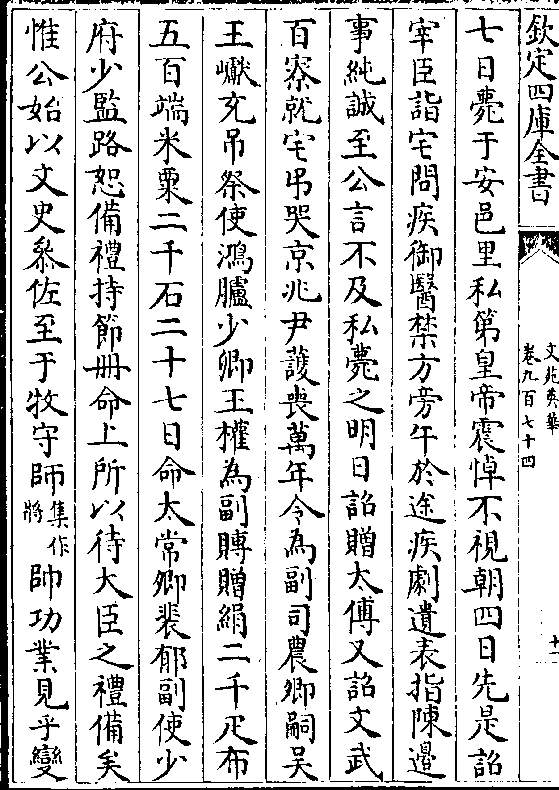 欽定四庫全書
文苑英華
卷九百七十四
十一
七日薨于安邑里私第皇帝震悼不視朝四日先是詔
宰臣詣宅問疾御醫禁方旁午於途疾劇遺表指陳邉
事純誠至公言不及私薨之明日詔贈太傅又詔文武
百寮就宅弔哭京兆尹護喪萬年令為副司農卿嗣吴
王巘充吊祭使鴻臚少卿王權為副賻贈絹二千疋布
五百端米粟二千石二十七日命太常卿裴郁副使少
府少監路恕備禮持節冊命上所以待大臣之禮備矣
惟公始以文史叅佐至于牧守師集作將帥功業見乎變